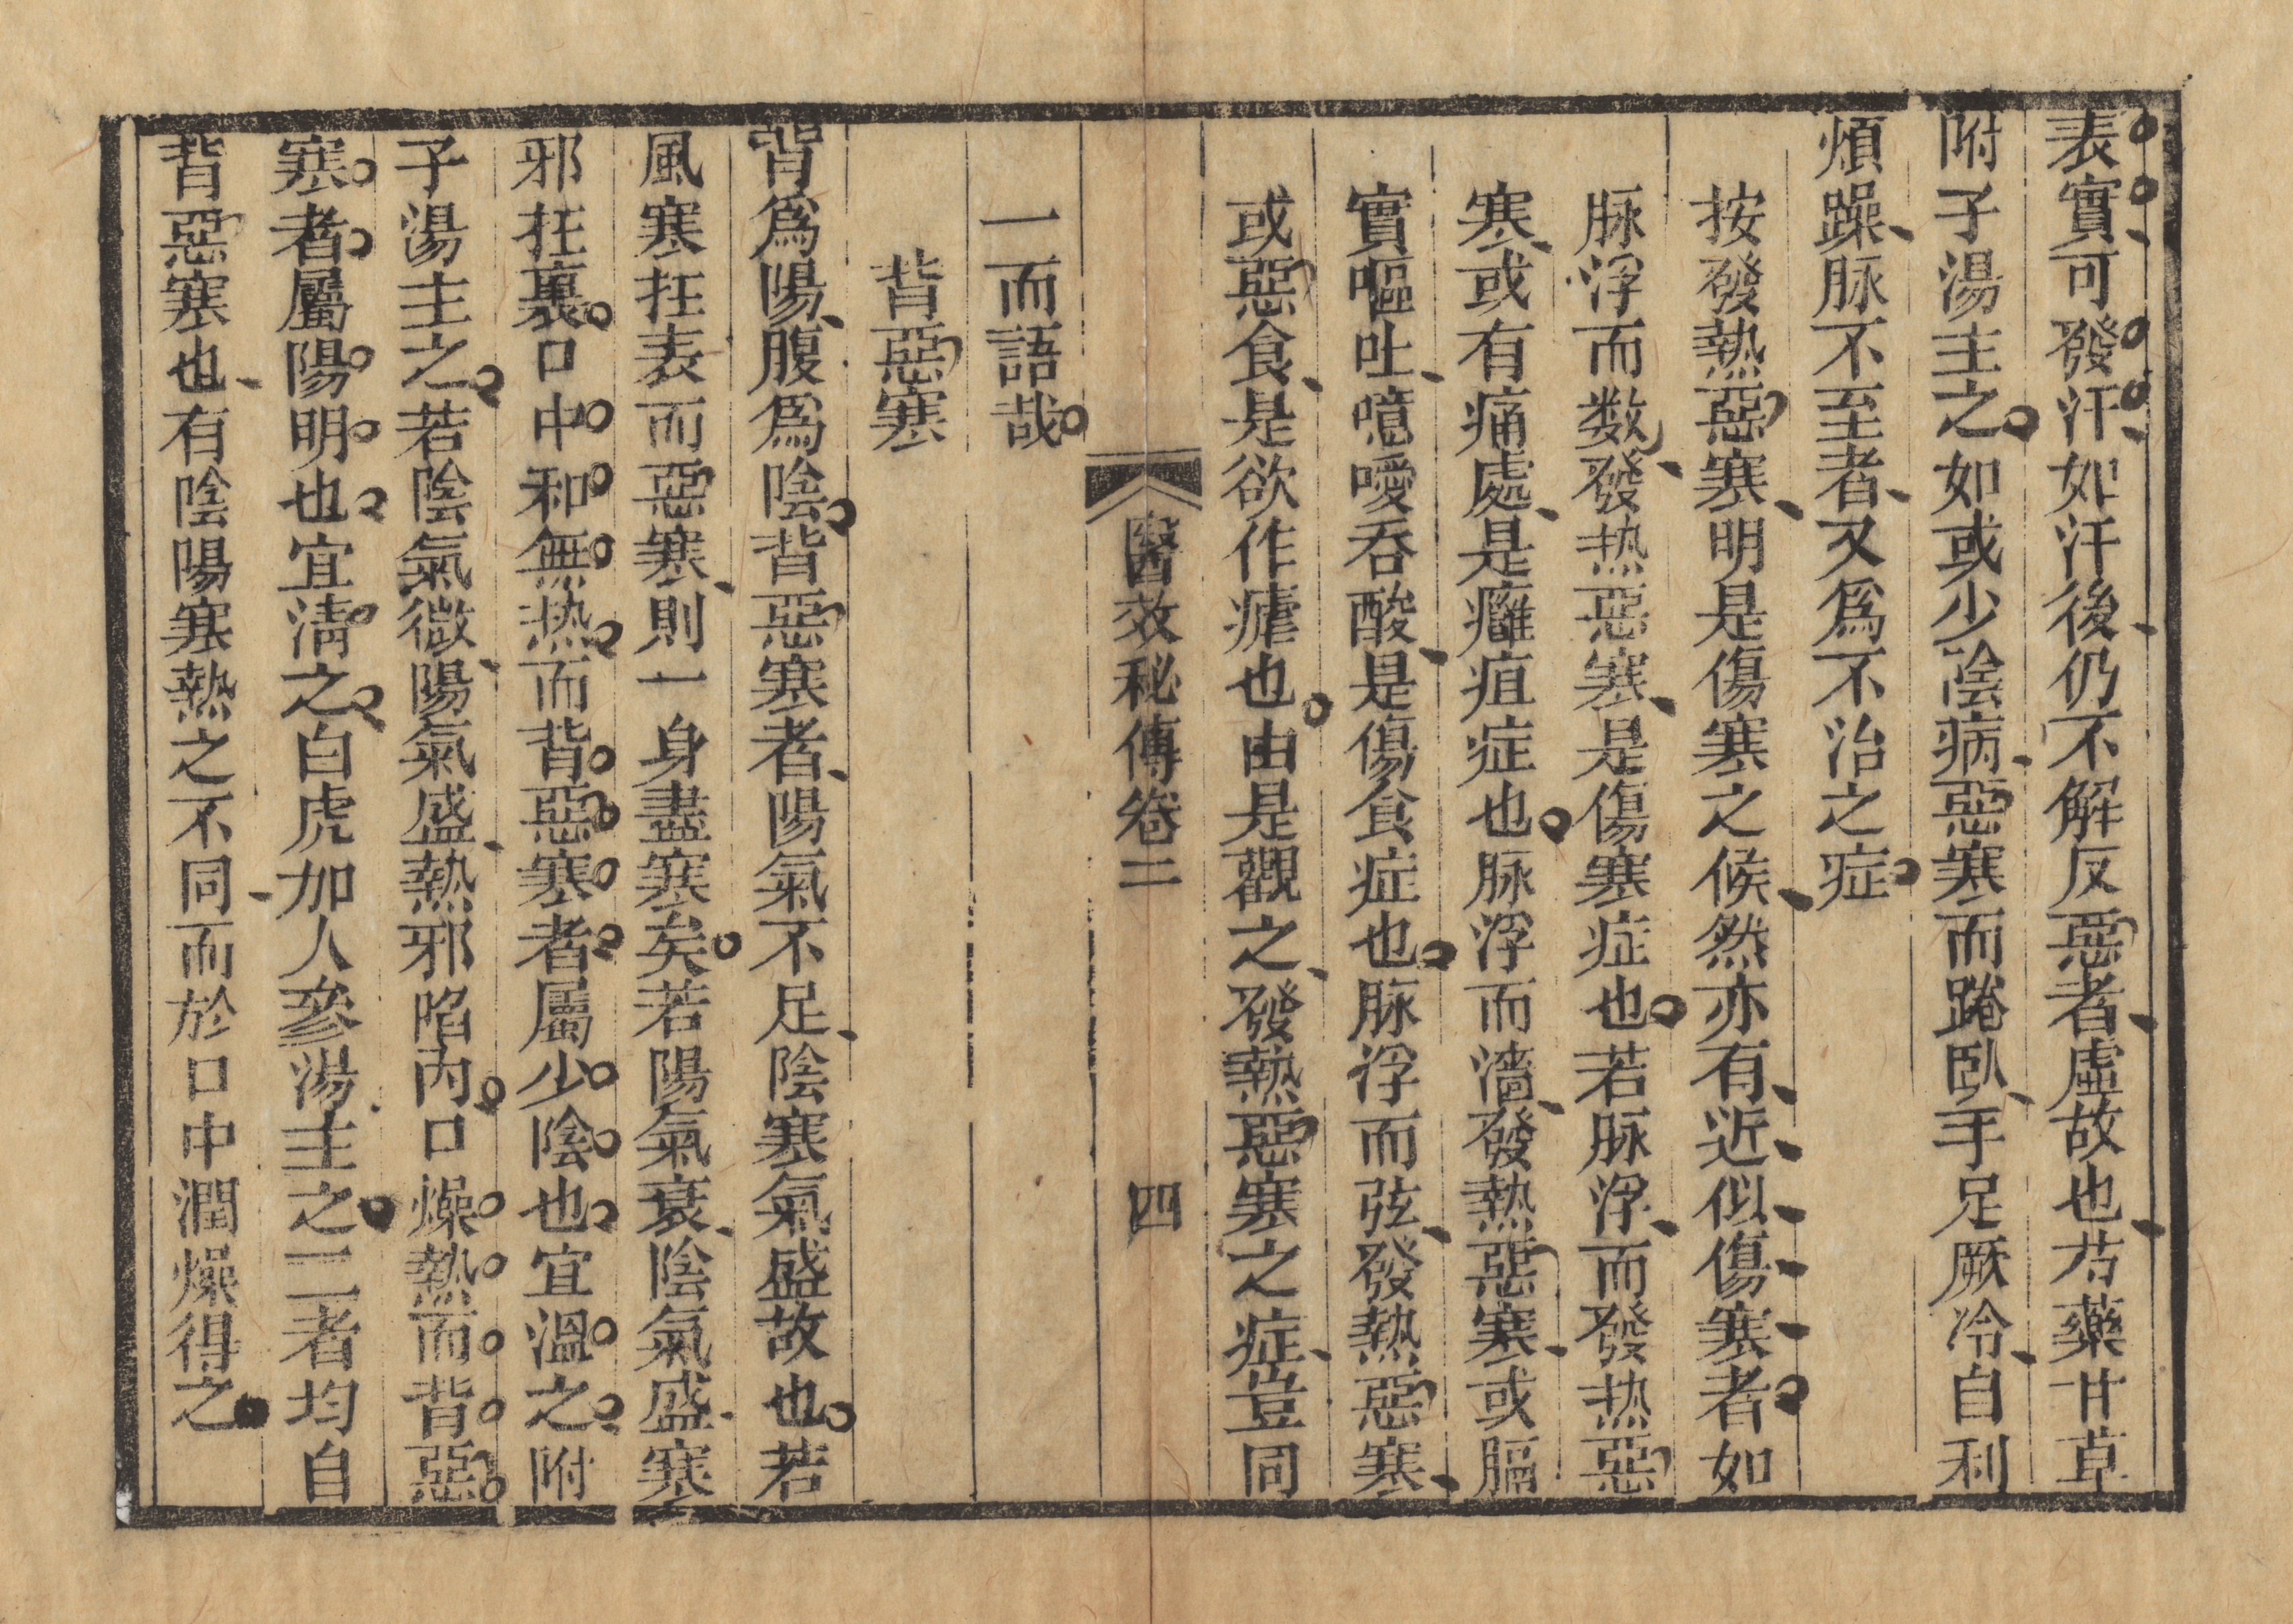 表實可發汗如汗後仍不解反惡者虛故也芍藥甘草
附子湯主之如或少陰病惡寒而踡臥手足厥冷自利
煩躁脉不至者又爲不治之症
按發熱惡寒明是傷寒之候然亦有近似傷寒者如
脉浮而数發热惡寒是傷寒症也若脉浮而發热惡
寒或有痛處是癰疽症也脉浮而濇發熱惡寒或膈
實嘔吐噫噯吞酸是傷食症也脉浮而弦發熱惡寒
或惡食是欲作瘧也由是觀之發熱惡寒之症豈同
醫效秘傳卷二 四
一而語哉
背惡寒
背爲陽腹爲陰背惡寒者陽氣不足陰寒氣盛故也若
風寒在表而惡寒則一身盡寒矣若陽氣衰陰氣盛寒
邪在裏口中和無热而背惡寒者屬少陰也宜溫之附
子湯主之若陰氣微陽氣盛熱邪陷內口燥熱而背惡
寒者屬陽明也宜淸之白虎加人參湯主之二者均自
背惡寒也有陰陽寒熱之不同而於口中潤燥得之